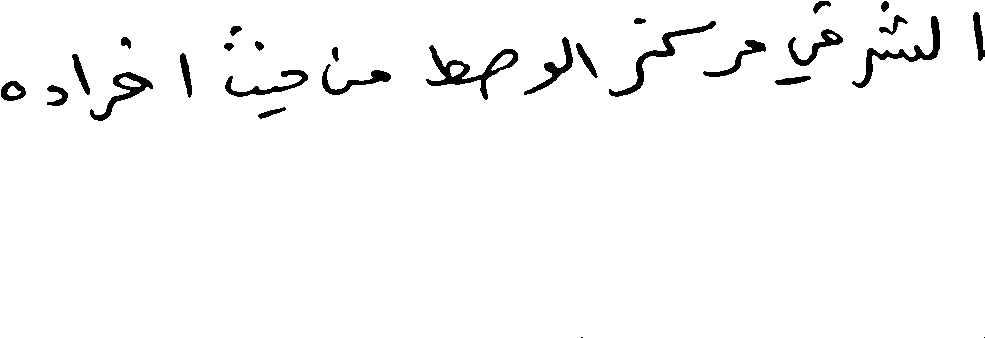 الشرقي مركز الوسط من حيث افراده